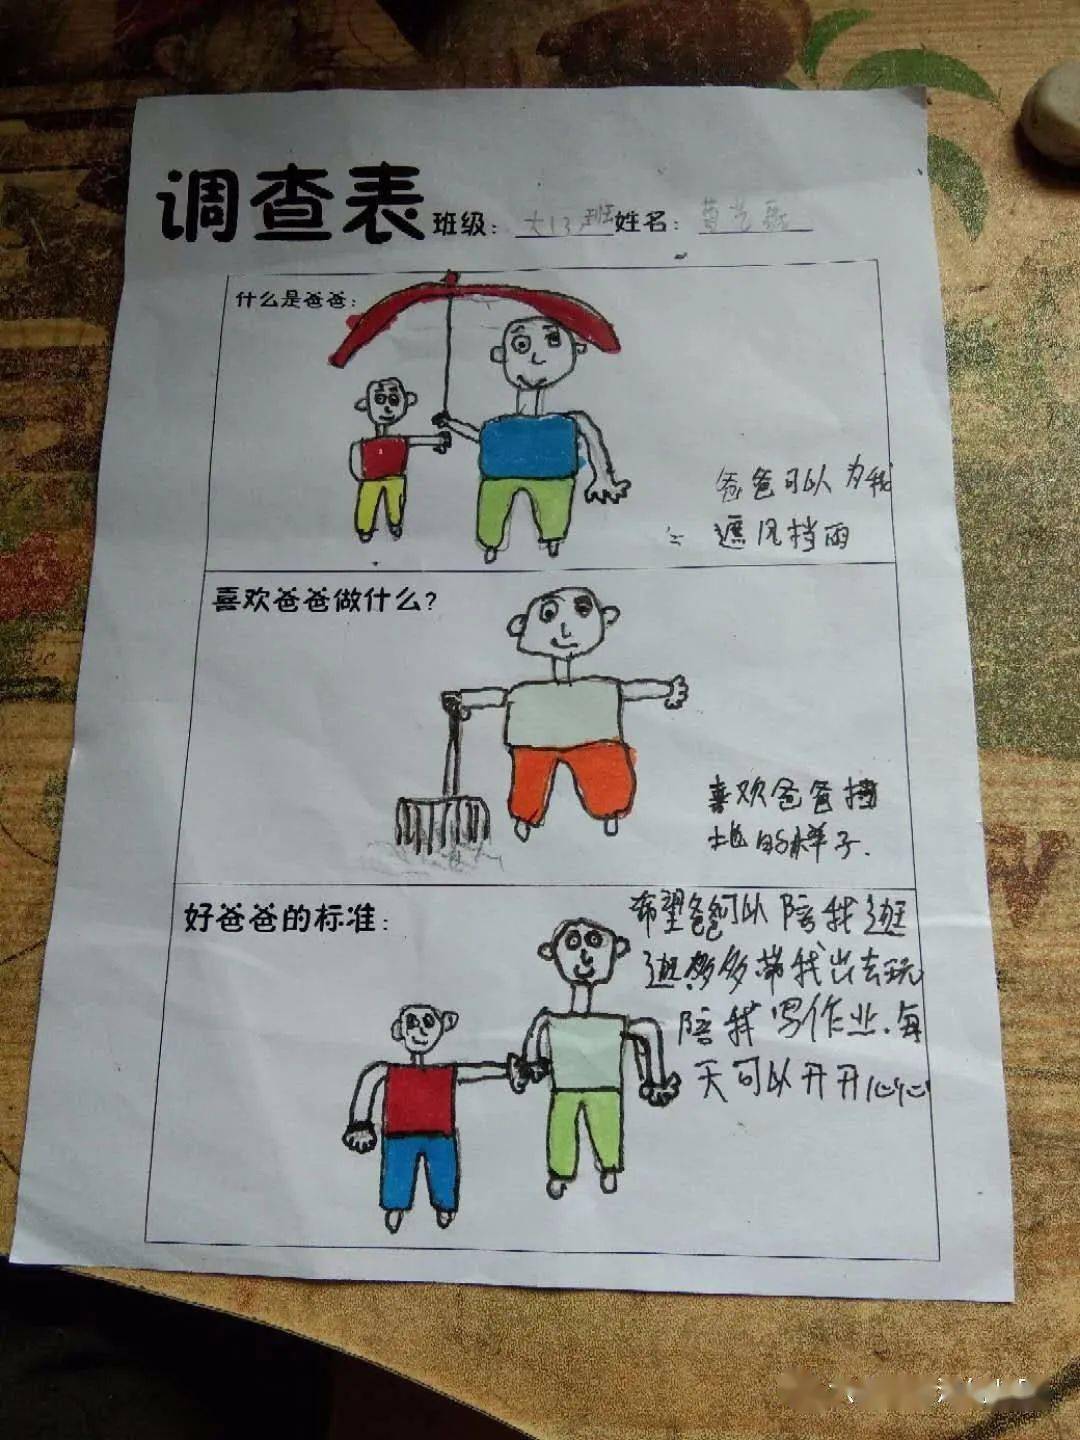 调查表 班级: 大13班 姓名:
什么是爸爸:
爸爸可以为我
遮风挡雨
喜欢爸爸做什么?
喜欢爸爸
地的样子.
好爸爸的标准:
希望爸爸可以陪我逛
逛多多带我出去玩
陪我写作业.每
天可以开开心心